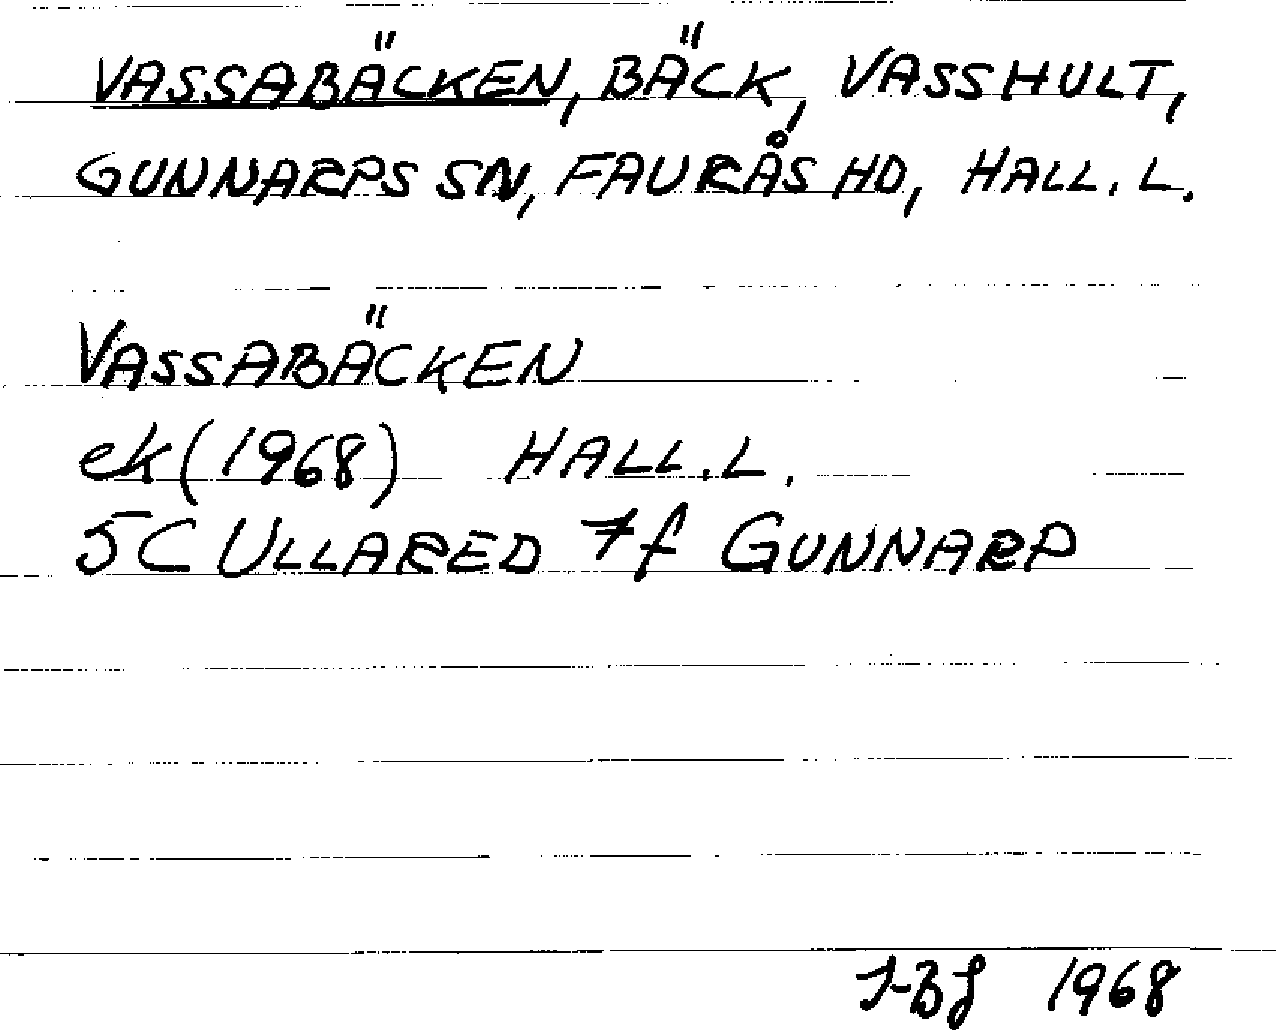 VASSABÄCKEN, BÄCK, VASSHULT,
GUNNARPS SN, FAURÅS HD, HALL. L.
VASSABÄCKEN
ek (1968) HALL. L.
5C ULLARED 7f GUNNARP
1968